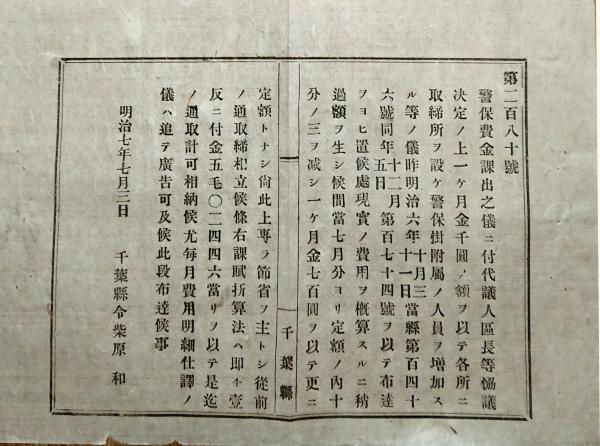 第二百八十號
警保費金課出之儀ニ付代議人區長等恊議
決定ノ上一ケ月金千圓ノ額ヲ以テ各所ニ
取締所ヲ設ケ警保掛附属ノ人員ヲ増加ス
ル等ノ儀昨明治六年十月三十一日當縣第百四十
六號同年十二月五日第百七十四號ヲ以テ布達
ヲヨヒ置候處現実ノ費用ヲ概算スルニ稍
過額ヲ生シ候間當七月分ヨリ定額ノ內十
分ノ三ヲ减シ一ケ月金七百圓ヲ以テ更ニ
千葉縣
定額トナシ尙此上專ラ節省ヲ主トシ從前
ノ通取締相立候條右課賦折算法ハ即チ壹
反ニ付金五毛〇二四四六當リヲ以テ是迄
ノ通取計可相納候尤每月費用明細仕譯ノ
儀ハ追テ廣告可及候此段布達候事
明治七年七月三日
千葉縣令柴原和